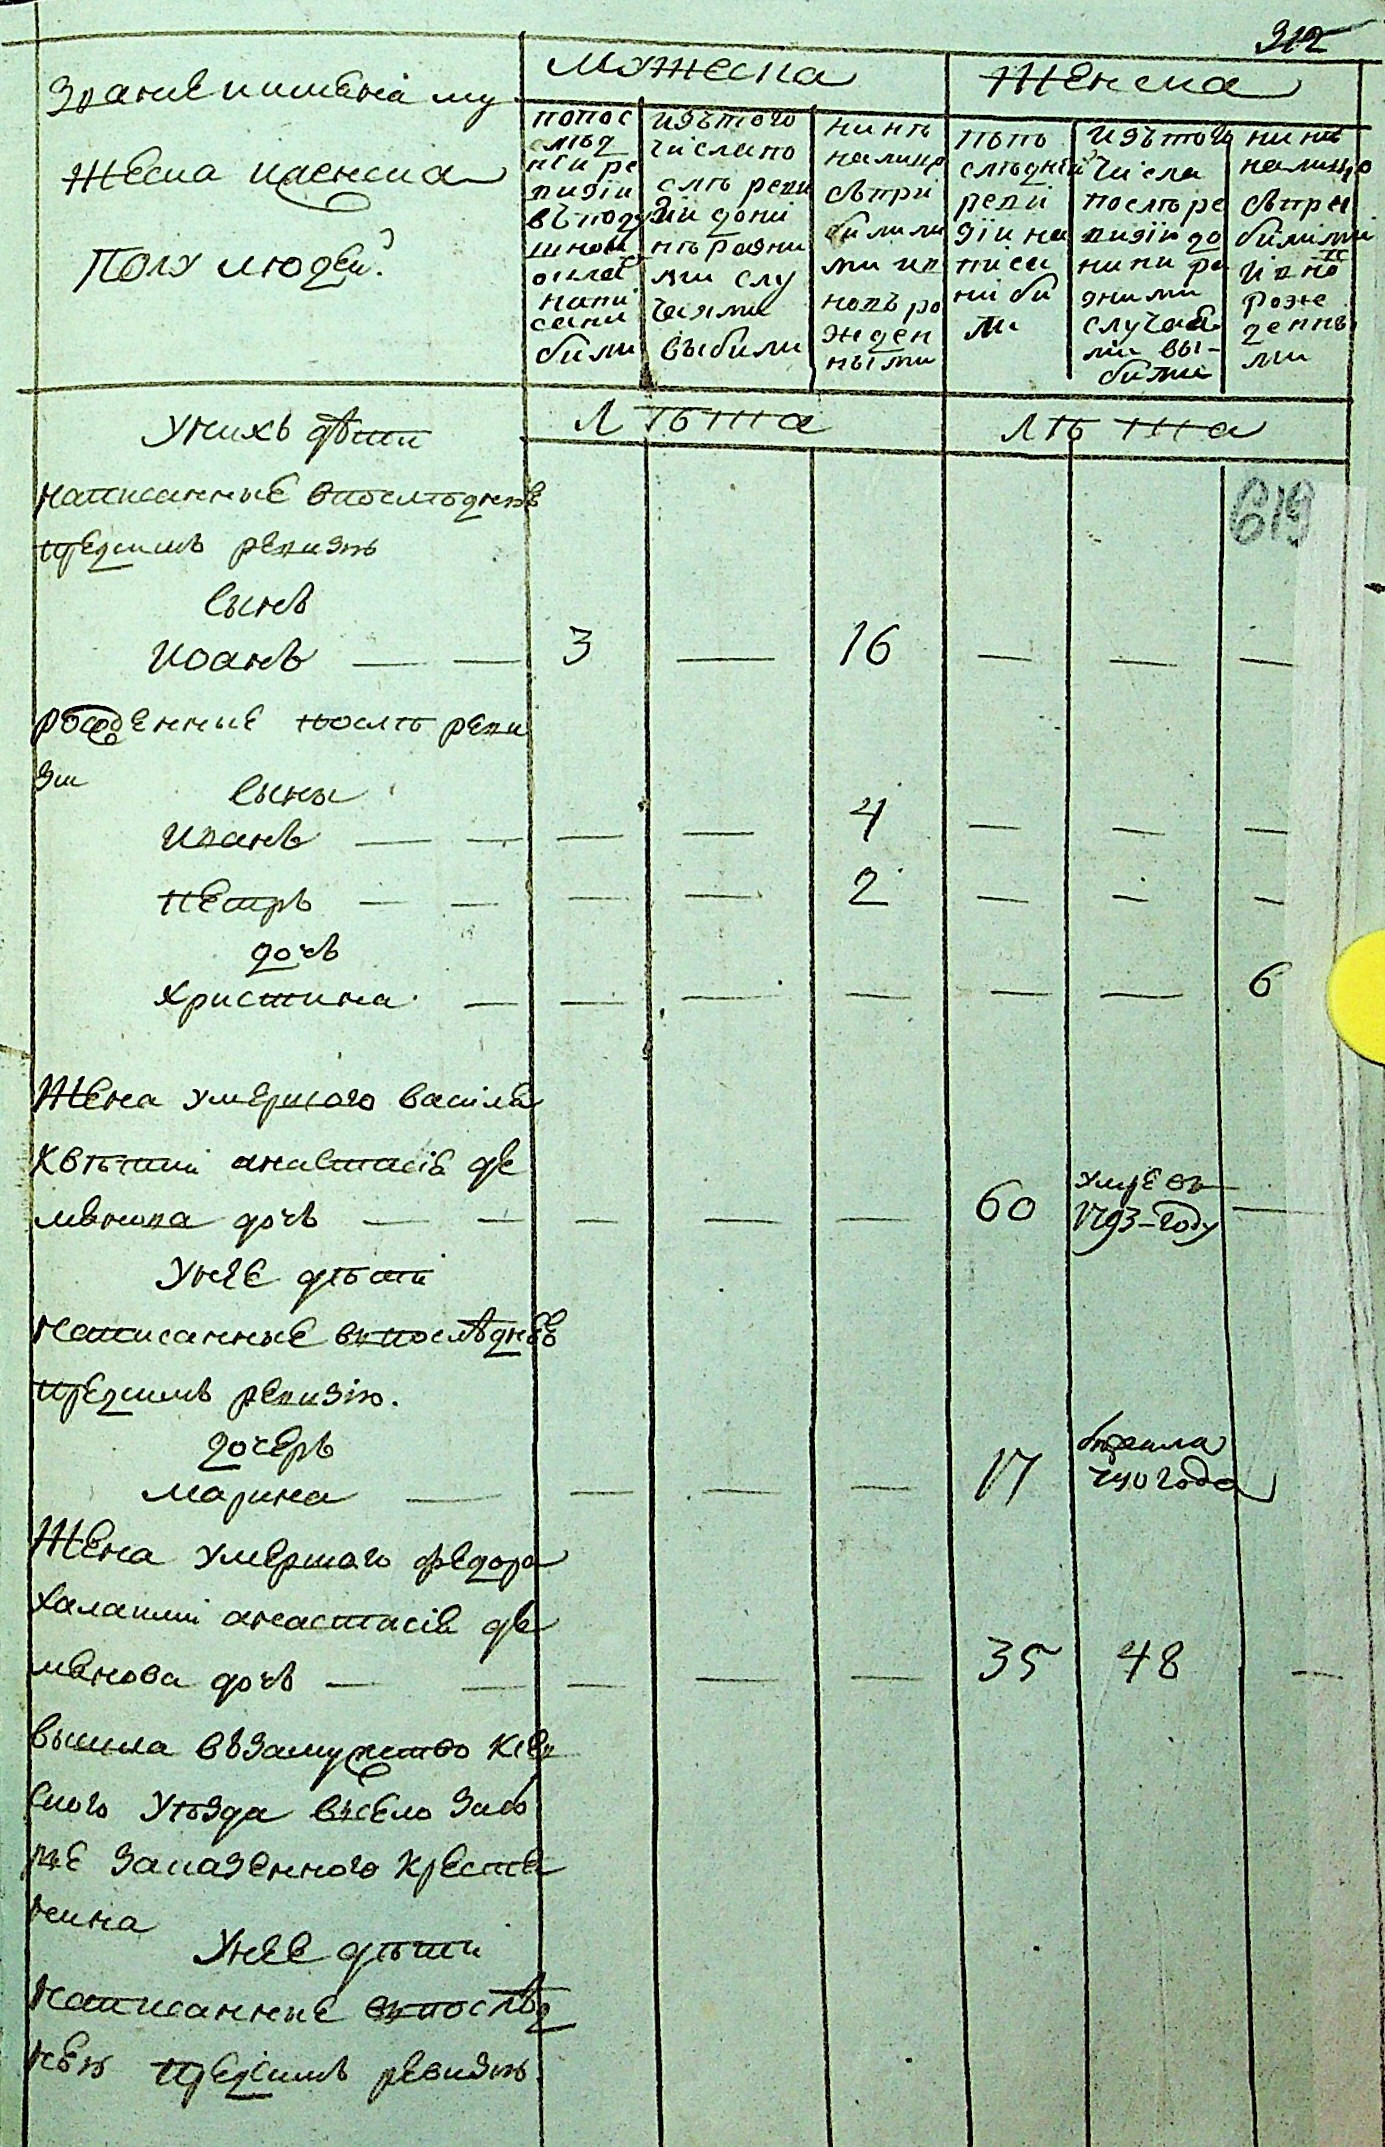 312
Званіе и имена му
жеска и женска
полу людей.
Мужеска
Женска
попос
лѣд
неи ре
визіи
въ поду
шном
окладе
напи
сани
были
изътого
числа по
слѣ реви
зіи дони
нѣ разни
ми слу
чаями
выбыли
нинѣ
налицо
съ при
былыми
ми и в
новь ро
жден
ными
попо
слѣдней
реви
зіи на
писа
ни бы
ли
изътого
числа
послѣ ре
визіи до
нини ра
зними
случая
ми вы-
были
нинѣ
налицо
съ при
былыми
и в но
рожде
денны
ми
Лѣта
Лѣта
619
У нихъ дѣти
написанные в последнюю
пред симъ ревизію
сынъ
Иоанъ 3 16
рожденные послѣ реви
зіи
сыны
Иванъ 4
Петръ 2
дочь
Христина 6
Жена умершаго василя
Квѣтки анастасія де
мянова дочь 60 умре въ 1793-году
У нее дѣти
написанные в последнюю
пред симъ ревизію.
дочерь
Марина 17 790 года
Жена умершаго федора
анастасія де
мянова дочь 35 48
вышла взамужство Кіев
ского уѣзда в село
за казенного крестя
нина
У нее дѣти
написанные в послѣд
нею пред симъ ревизію